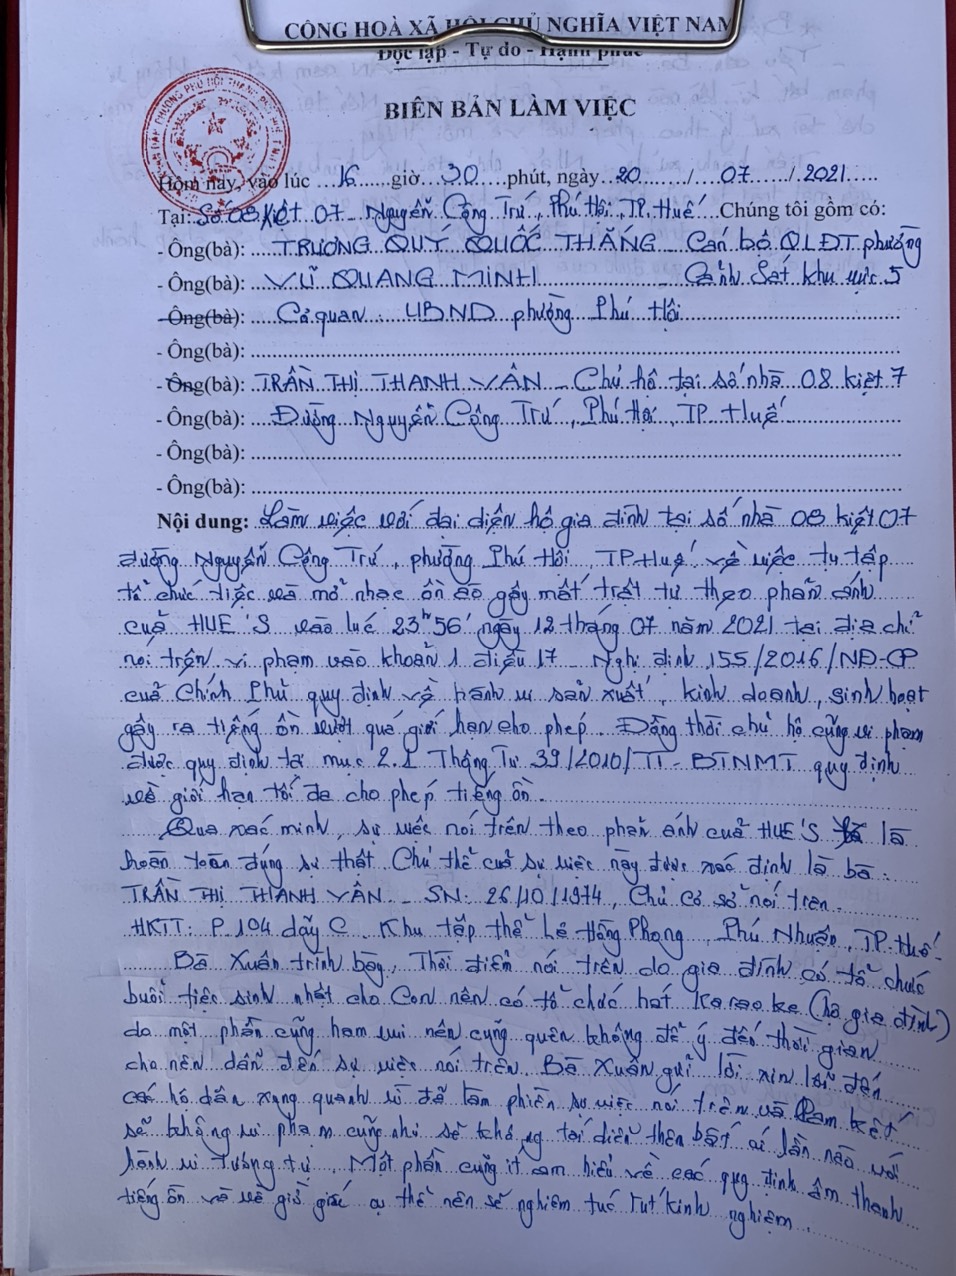 CÔNG HOÀ XÃ HỘI CHỦ NGHĨA VIỆT NAM
Độc lập - Tự do - Hạnh phúc
BIÊN BẢN LÀM VIỆC
Hôm nay, vào lúc 16 giờ 30 phút, ngày 20 / 07 / 2021
Tại: Số 08 Kiệt 07 Nguyễn Công Trứ, Phú Hội, TP. Huế Chúng tôi gồm có:
- Ông(bà): TRƯƠNG QUÝ QUỐC THẮNG - Cán bộ QLĐT phường
- Ông(bà): VŨ QUANG MINH - Cảnh Sát khu vực 5
- Ông(bà): Cơ quan: UBND phường Phú Hội
- Ông(bà):
- Ông(bà): TRẦN THỊ THANH VÂN - Chủ hộ tại số nhà 08 kiệt 7
- Ông(bà): Đường Nguyễn Công Trứ, Phú Hội, TP Huế
- Ông(bà):
- Ông(bà):
Nội dung: Làm việc với đại diện hộ gia đình tại số nhà 08 kiệt 07
đường Nguyễn Công Trứ, phường Phú Hội, TP Huế về việc tụ tập
tổ chức tiệc và mở nhạc ồn ào gây mất trật tự theo phản ánh
của HUE'S vào lúc 23h56' ngày 12 tháng 07 năm 2021 tại địa chỉ
nói trên vi phạm vào khoản 1 điều 17 Nghị định 155/2016/NĐ-CP
của Chính Phủ quy định về hành vi sản xuất, kinh doanh, sinh hoạt
gây ra tiếng ồn vượt quá giới hạn cho phép. Đồng thời chủ hộ cũng vi phạm
được quy định tại mục 2.1 Thông Tư 39/2010/TT-BTNMT quy định
về giới hạn tối đa cho phép tiếng ồn.
Qua xác minh, sự việc nói trên theo phản ánh của HUE'S là
hoàn toàn đúng sự thật. Chủ thể của sự việc này được xác định là bà:
TRẦN THỊ THANH VÂN - SN: 26/10/1974, Chủ cơ sở nói trên.
HKTT: P.104 dãy C Khu tập thể Lê Hồng Phong, Phú Nhuận, TP. Huế.
Bà Xuân trình bày, Thời điểm nói trên do gia đình có tổ chức
buổi tiệc sinh nhật cho con nên có tổ chức hát Karaoke (hộ gia đình)
do một phần cũng ham vui nên cũng quên không để ý đến thời gian
cho nên dẫn đến sự việc nói trên. Bà Xuân gửi lời xin lỗi đến
các hộ dân xung quanh vì đã làm phiền sự việc nói trên và Cam kết
sẽ không vi phạm cũng như sẽ không tái diễn thêm bất cứ lần nào với
hành vi tương tự. Một phần cũng ít am hiểu về các quy định âm thanh
tiếng ồn và về giờ giấc cụ thể nên sẽ nghiêm túc rút kinh nghiệm.